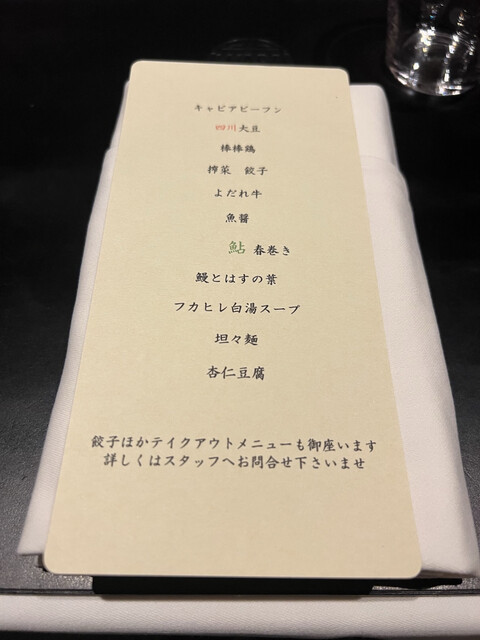 キャビアビーフン
四川大豆
棒棒鶏
搾菜　餃子
よだれ牛
魚醬
鮎 春巻き
鰻とはすの葉
フカヒレ白湯スープ
坦々麺
杏仁豆腐
餃子ほかテイクアウトメニューも御座います
詳しくはスタッフへお問合せ下さいませ